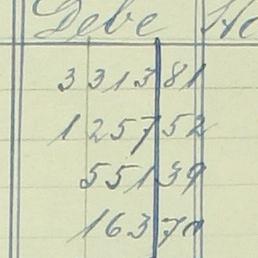 Debe
3 313 81
1 257 52
551 39
163 70